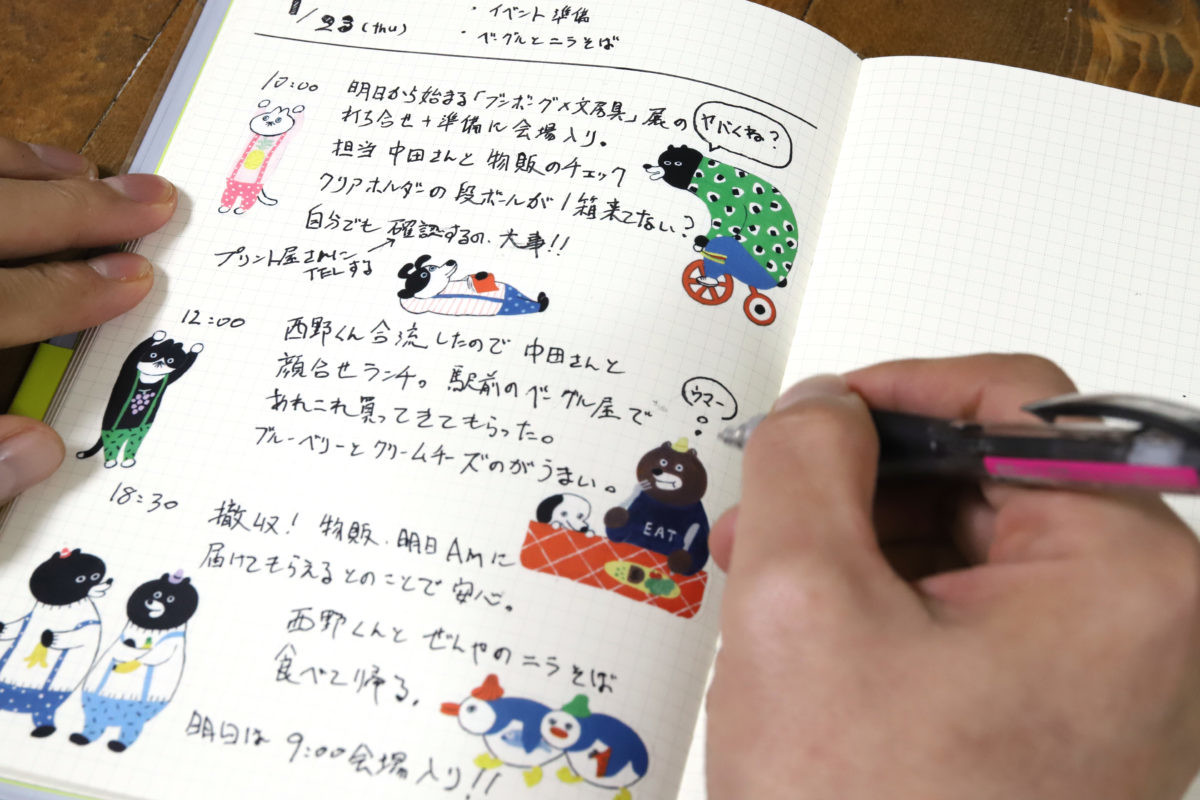 1/23(thu)
・イベント準備
・ベーグルとニラそば
10:00
明日から始まる「ブンボーグ×文房具」展の
打ち合せ+準備に会場入り。
担当 中田さんと 物販のチェック
クリアホルダーの段ボールが1箱来てない?
自分でも確認するの、大事!!
プリント屋さんに
TELする
ヤバくね?
12:00
西野くん合流したので 中田さんと
顔合せランチ。駅前のベーグル屋で
あれこれ買ってきてもらった。
ブルーベリーとクリームチーズのがうまい。
ウマー
EAT
18:30
撤収! 物販、明日Amに
届けてもらえるとのことで安心。
西野くんと ぜんやのニラそば
食べて帰る。
明日は 9:00会場入り!!